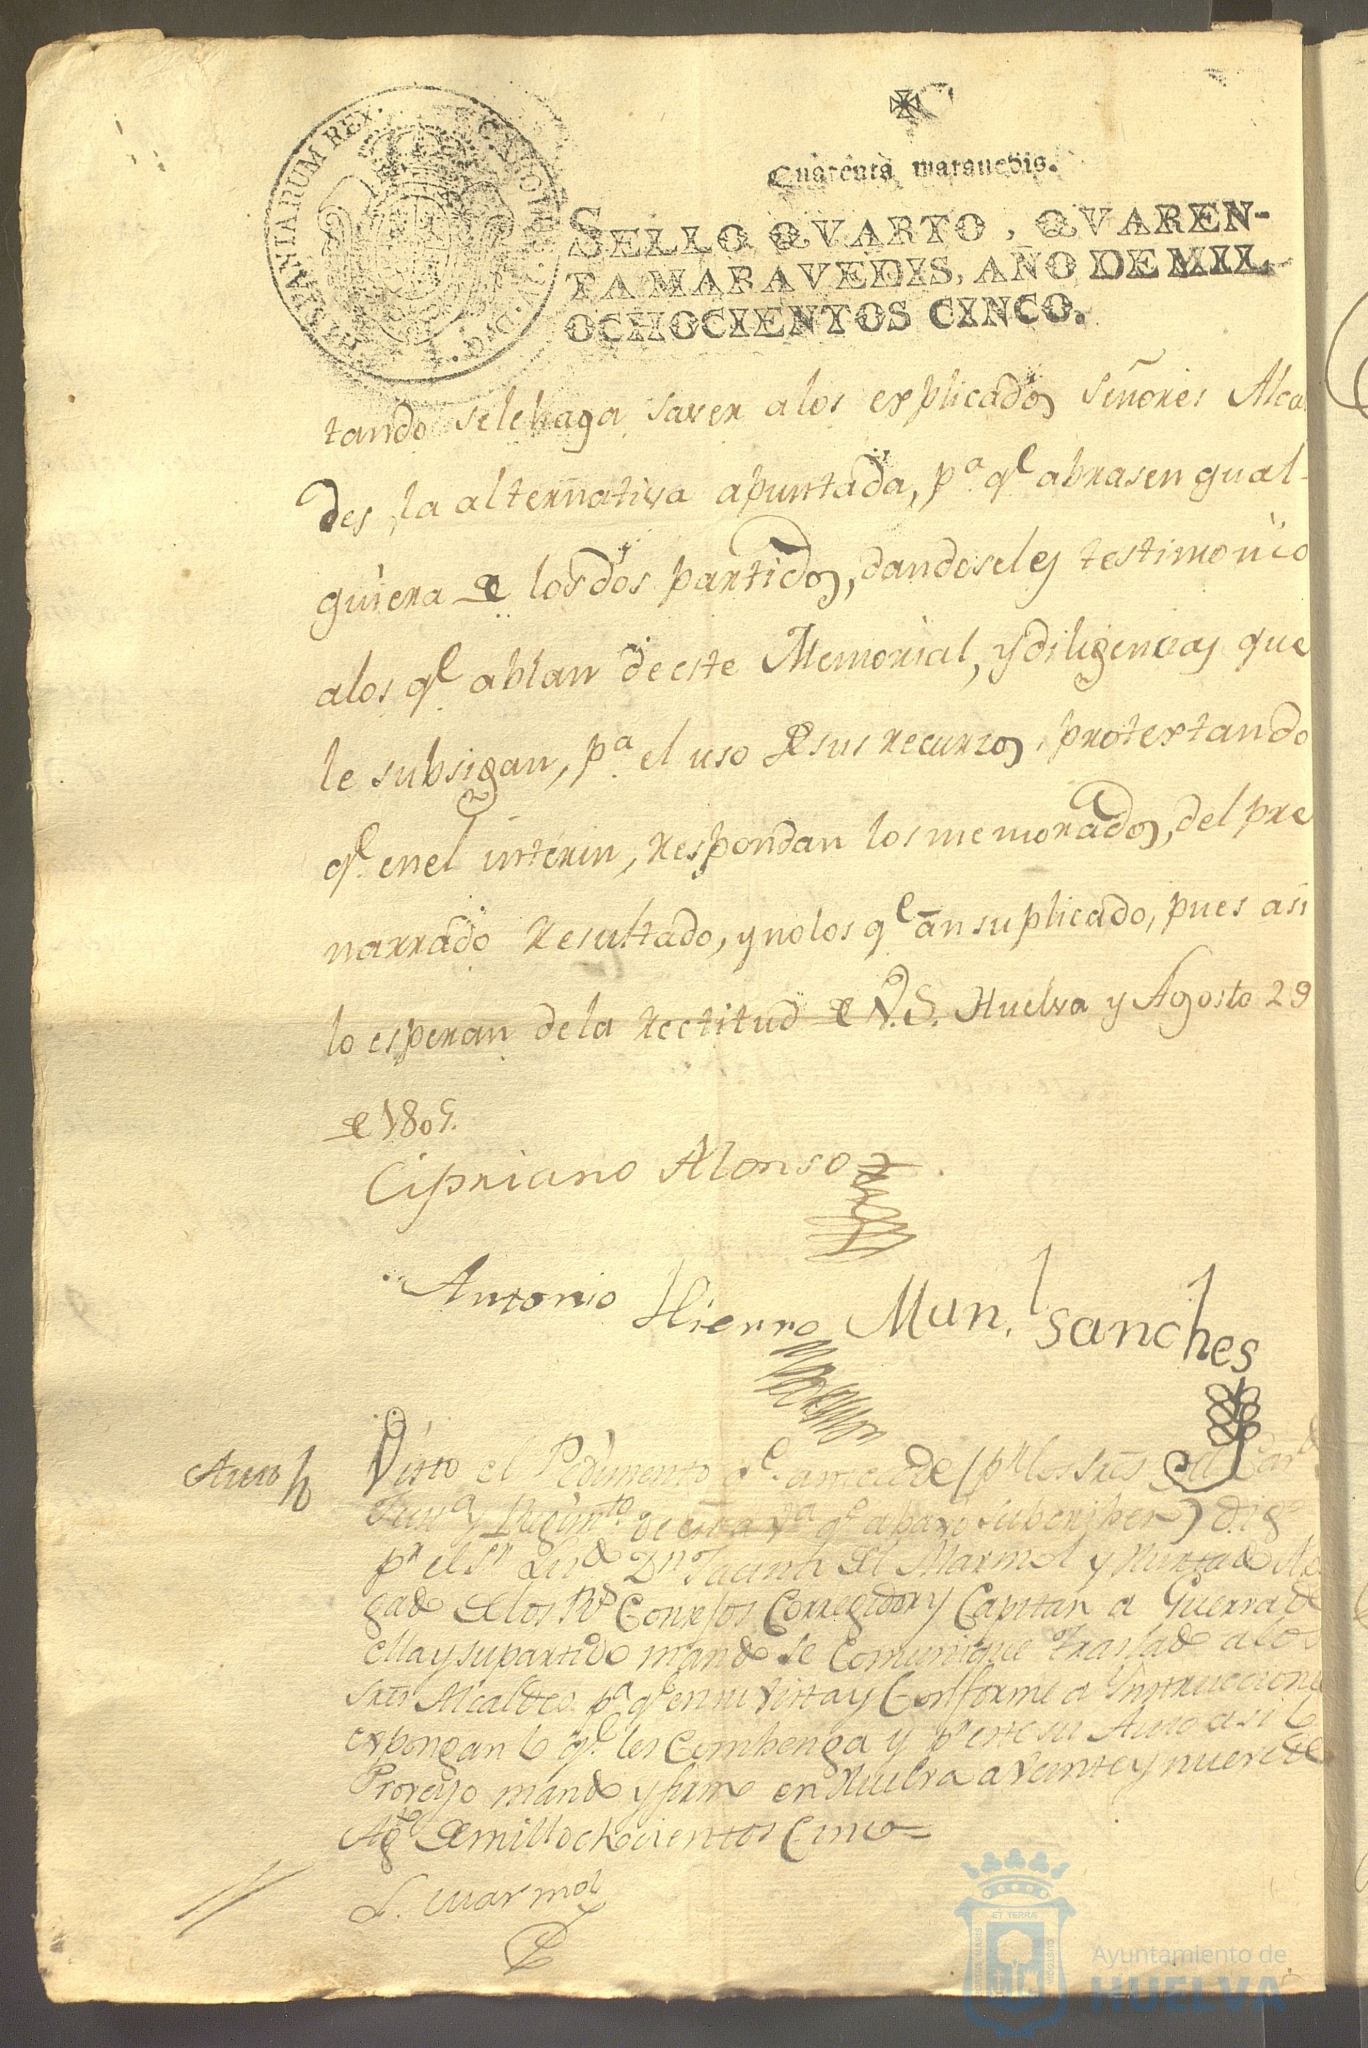 HISPANIARUM REX. CAROLUS IV. D. G.
Quarenta marauedis.
SELLO QVARTO, QVAREN-
TA MARAVEDIS, AÑO DE MIL
OCHOCIENTOS CINCO.
tando sele haga saver alos explicados Señores Alcal
des la alternativa apuntada, pa. qe abrasen qual-
quiera de los dos partidos, dandoseles testimonio
alos qe ablan de este Memorial, y diligencias que
le subsigan, pa. el uso de sus recursos, protextando
qe. en el interin, respondan los memorados, del pre
narrado resultado, y no los qe an suplicado, pues asi
lo esperan de la rectitud de V.S. Huelva y Agosto 29
de 1805.
Cipriano Alonso
Antonio Hierro Man.l Sanches
Auto
Visto el Pedimento qe. antecede (pr los Sres del
y Regimto. de esta Va qe abajo subcriben) Digo
pr el Sr Licdo Dn Jacinto del Marmol y Hurtado Abo
gado de los Rs Consejos Corregidor y Capitan a Guerra de
ella y su partido mando se Comunique traslado a los
Sres Alcaldes pa qe en su Vista y Conforme a Instrucciones
expongan lo qe les Combenga y pr este su Auto asi lo
Proveyo mando y firmo en Huelva a Veinte y nueve de
Agto de mill ochocientos Cinco=
L. Marmol
ET TERRÆ
PORTUS MARIS
CUSTODIA
Ayuntamiento de
HUELVA